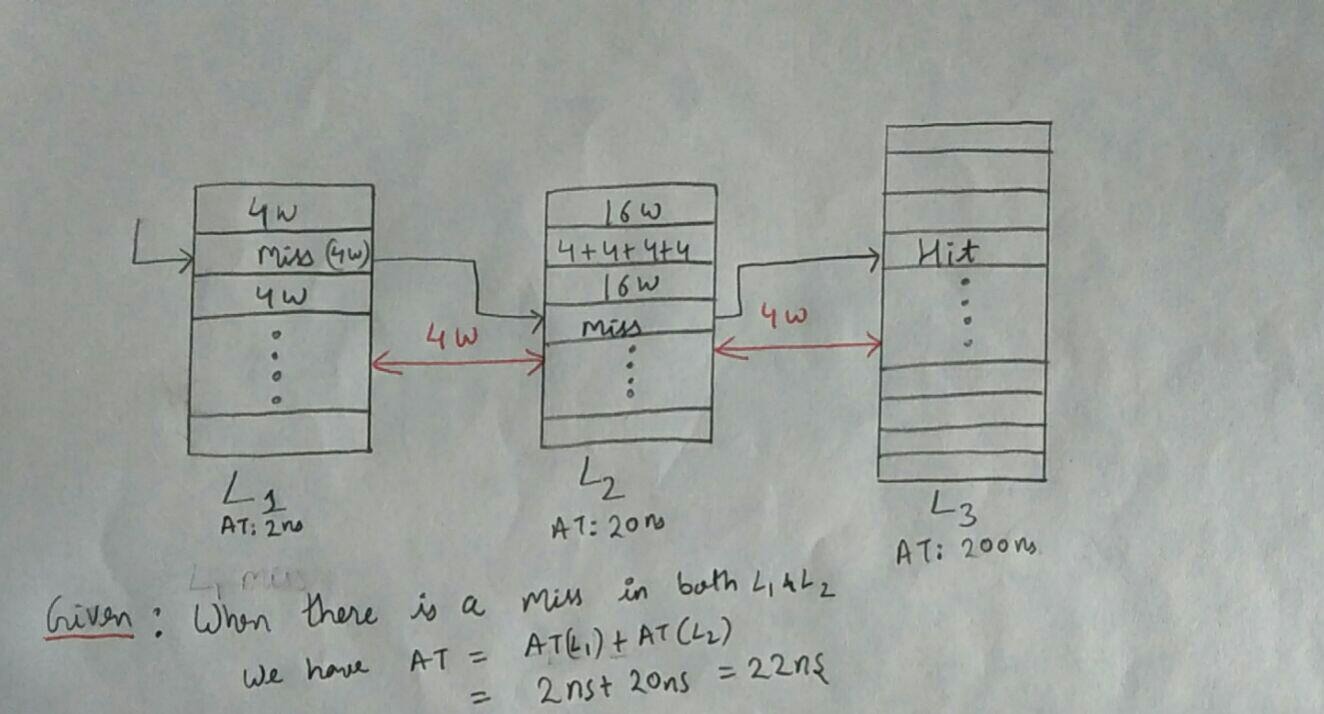 4W
Miss (4W)
4W
4W
L1
AT: 2ns
16W
4+4+4+4
16W
Miss
4W
L2
AT: 20ns
Hit
L3
AT: 200ns
L1 miss
Given: When there is a miss in both L1 & L2
We have AT = AT(L1) + AT(L2)
= 2ns + 20ns = 22ns